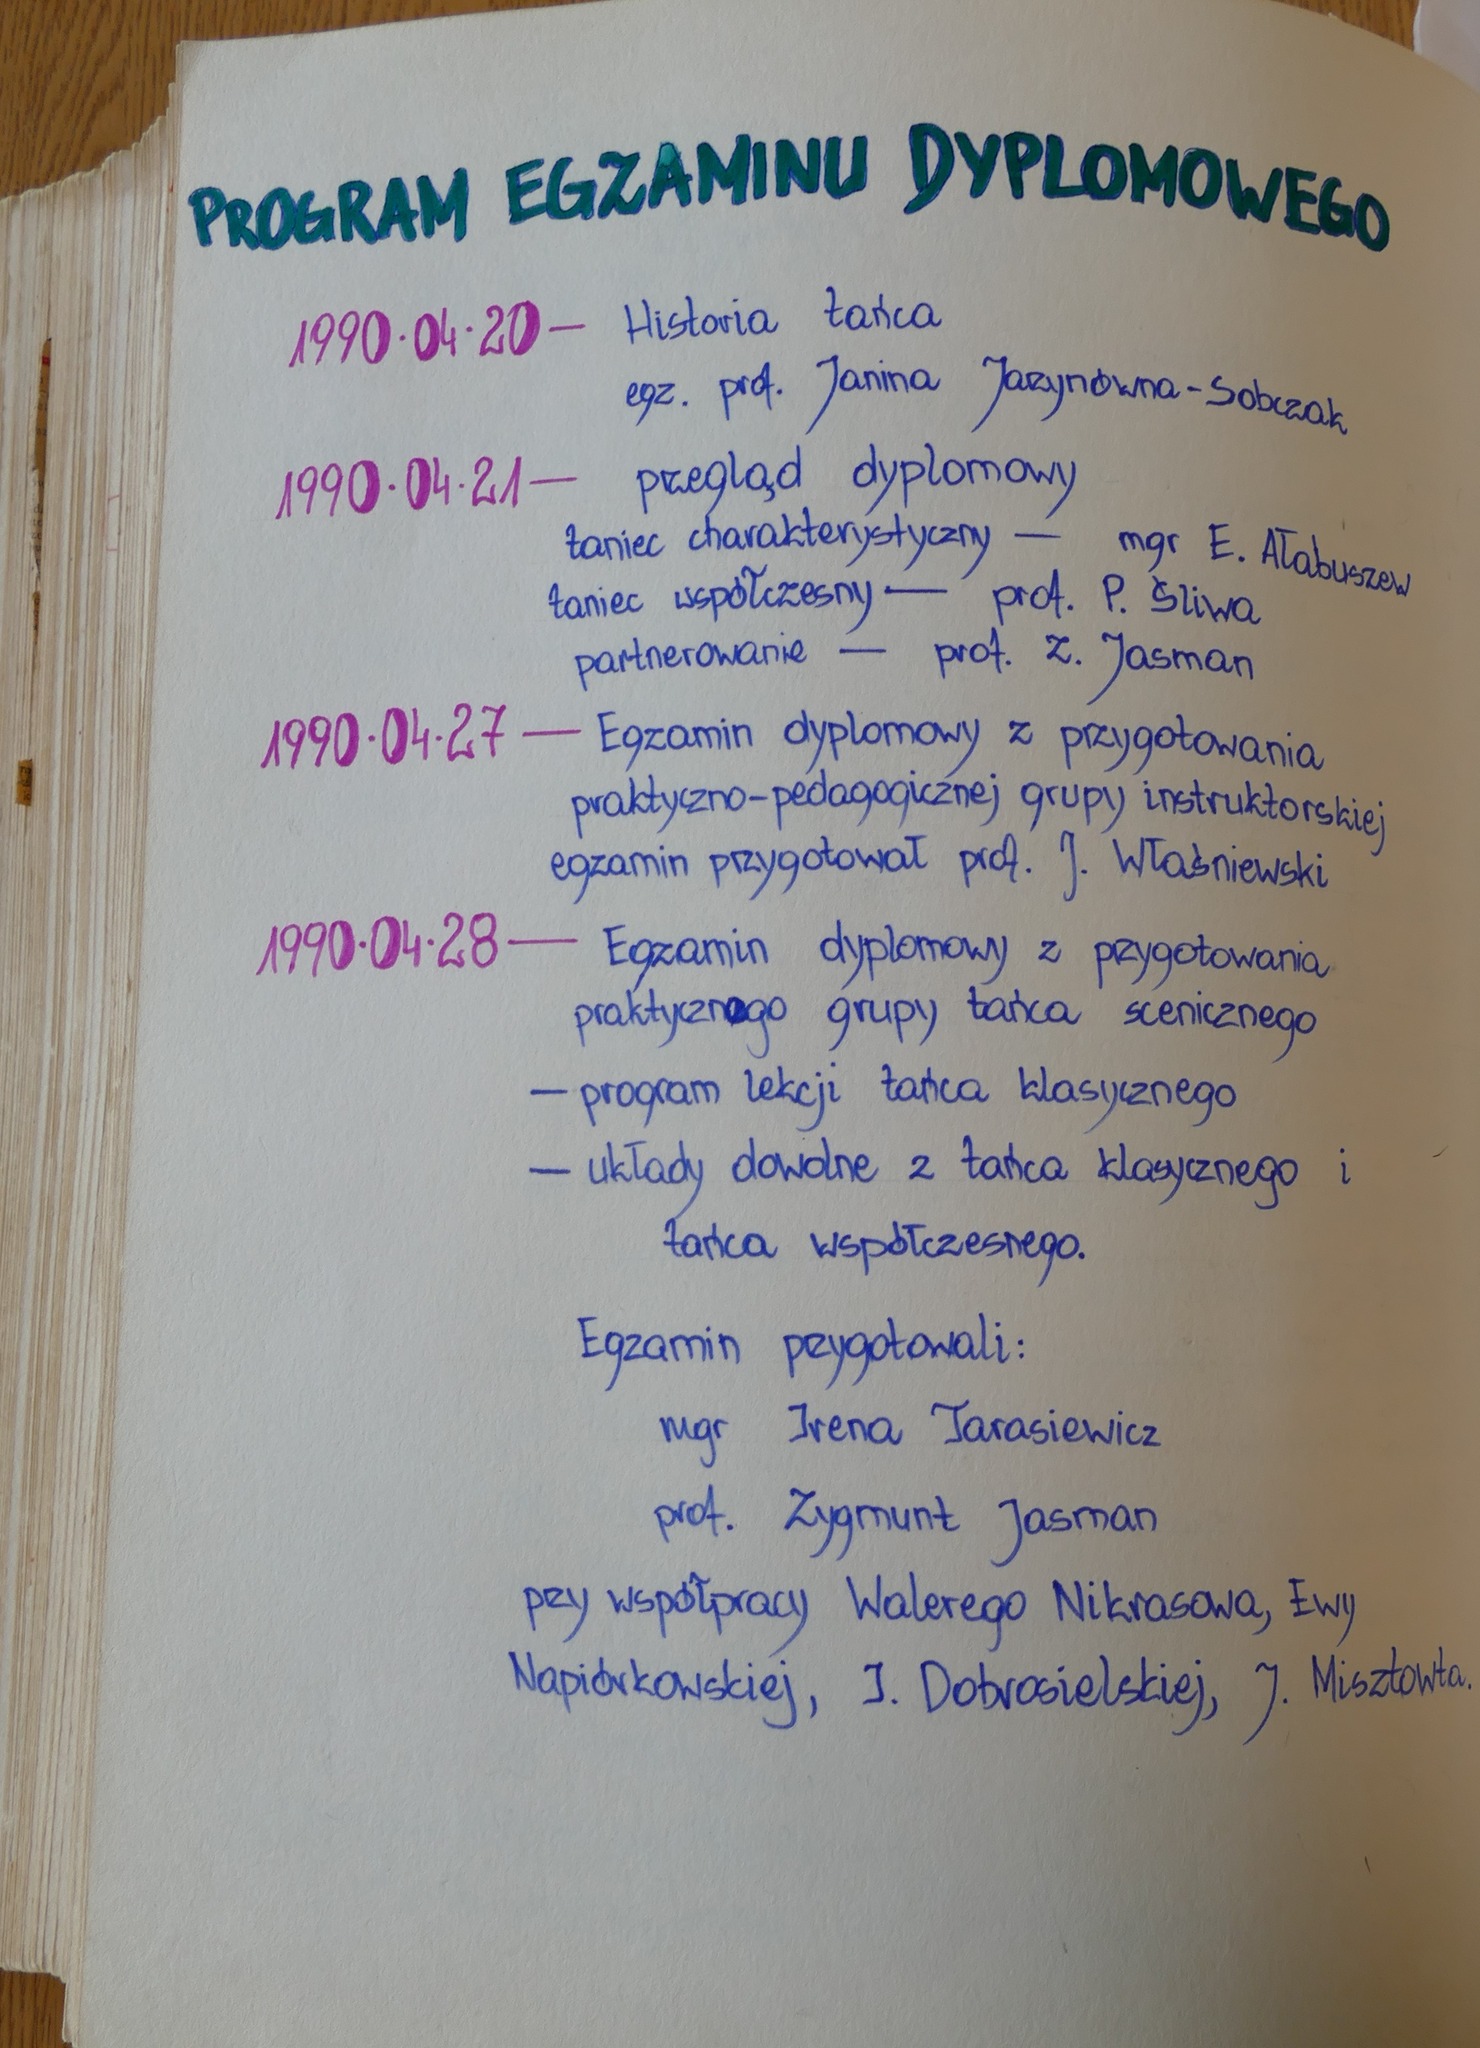 PROGRAM EGZAMINU DYPLOMOWEGO
1990.04.20 — Historia tańca
egz. prof. Janina Jarzynówna-Sobczak
1990.04.21 — przegląd dyplomowy
taniec charakterystyczny — mgr E. Ałabuszew
taniec współczesny — prof. P. Śliwa
partnerowanie — prof. Z. Jasman
1990.04.27 — Egzamin dyplomowy z przygotowania
praktyczno-pedagogicznej grupy instruktorskiej
egzamin przygotował prof. J. Właśniewski
1990.04.28 — Egzamin dyplomowy z przygotowania
praktycznego grupy tańca scenicznego
— program lekcji tańca klasycznego
— układy dowolne z tańca klasycznego i
tańca współczesnego.
Egzamin przygotowali:
mgr Irena Tarasiewicz
prof. Zygmunt Jasman
przy współpracy Walerego Nikrasowa, Ewy
Napiórkowskiej, I. Dobrosielskiej, J. Misztowta.